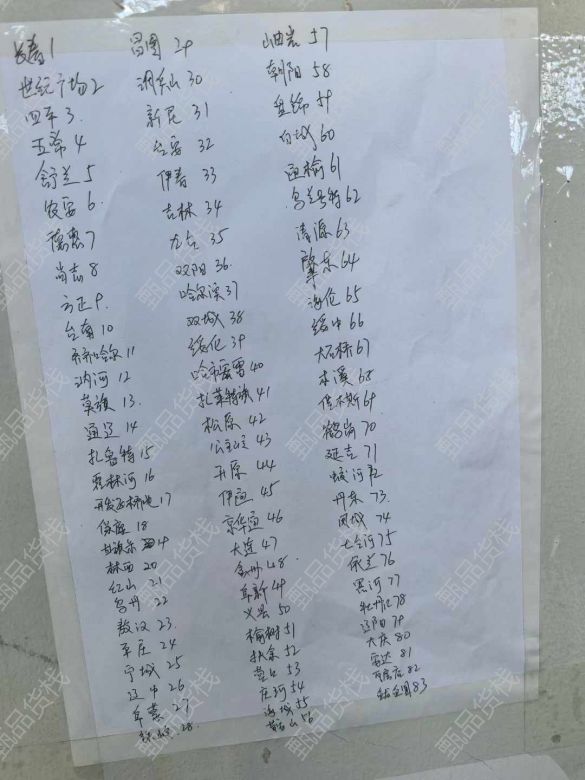 长春1
世纪广场2
四平3.
五常4
舒兰5
农安6.
德惠7
尚志8
方正9.
台南10
齐齐哈尔11
讷河12
莫旗13.
通辽14
扎鲁特15
霍林河16
17
保康18
19
林西20
红山21
乌丹22
敖汉23.
平庄24
宁城25
辽中26
阜蒙27
28
昌图29
30
新民31
台安32
伊春33
吉林34
九台35
双阳36.
哈尔滨37
双城38
绥化39
40
扎莱特旗41
松原42
公主岭43
开原44
伊通45
46
大连47
金州48.
阜新49
义县50
榆树51
扶余52
营口53
庄河54
海城55
56
山曲岩57
朝阳58
盘锦59
白城60
通榆61
乌兰号特62
清源63
肇东64
海伦65
绥中66
大石桥67
本溪68
佳木斯69
鹤岗70
延吉71
蛟河72
丹东73
凤城74
七台河75
依兰76
黑河77
牡丹江78
辽阳79
大庆80
安达81
瓦房店82
83
甄品货栈